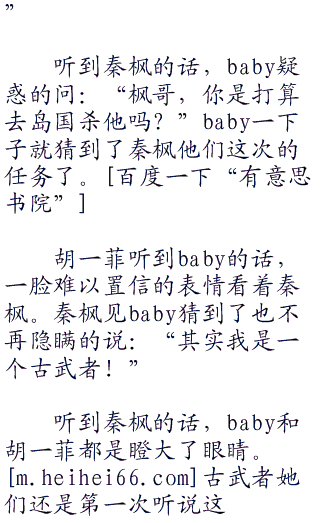 ”
听到秦枫的话，baby疑
惑的问：“枫哥，你是打算
去岛国杀他吗？”baby一下
子就猜到了秦枫他们这次的
任务了。[百度一下“有意思
书院”]
胡一菲听到baby的话，
一脸难以置信的表情看着秦
枫。秦枫见baby猜到了也不
再隐瞒的说：“其实我是一
个古武者！”
听到秦枫的话，baby和
胡一菲都是瞪大了眼睛。
[m.heihei66.com]古武者她
们还是第一次听说这